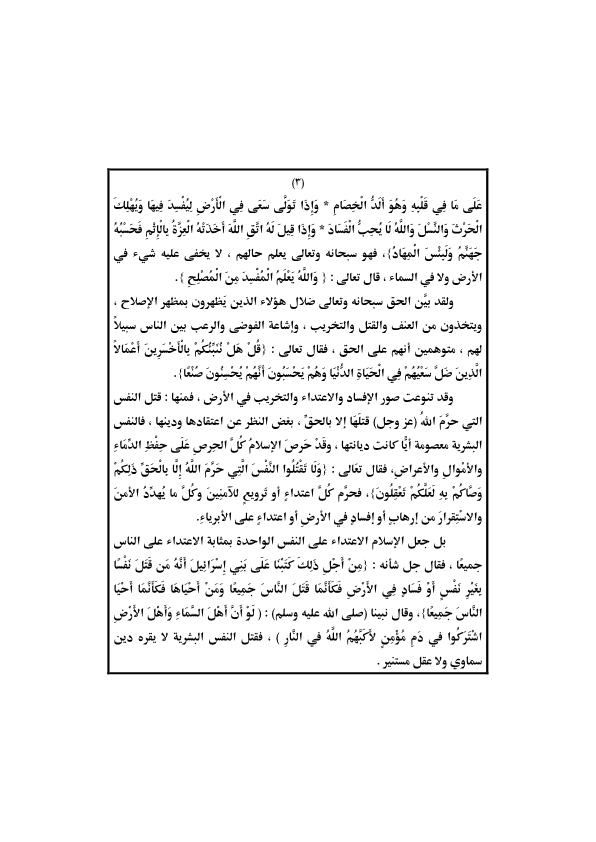 (٣)
عَلَى مَا فِي قَلْبِهِ وَهُوَ أَلَدُّ الْخِصَامِ * وَإِذَا تَوَلَّى سَعَى فِي الْأَرْضِ لِيُفْسِدَ فِيهَا وَيُهْلِكَ
الْحَرْثَ وَالنَّسْلَ وَاللَّهُ لَا يُحِبُّ الْفَسَادَ * وَإِذَا قِيلَ لَهُ اتَّقِ اللَّهَ أَخَذَتْهُ الْعِزَّةُ بِالْإِثْمِ فَحَسْبُهُ
جَهَنَّمُ وَلَبِئْسَ الْمِهَادُ}، فهو سبحانه وتعالى يعلم حالهم ، لا يخفى عليه شيء في
الأرض ولا في السماء ، قال تعالى : { وَاللَّهُ يَعْلَمُ الْمُفْسِدَ مِنَ الْمُصْلِحِ }.
ولقد بيَّن الحق سبحانه وتعالى ضلال هؤلاء الذين يَظهرون بمظهر الإصلاح ،
ويتخذون من العنف والقتل والتخريب ، وإشاعة الفوضى والرعب بين الناس سبيلاً
لهم ، متوهمين أنهم على الحق ، فقال تعالى : {قُلْ هَلْ نُنَبِّئُكُمْ بِالْأَخْسَرِينَ أَعْمَالاً
الَّذِينَ ضَلَّ سَعْيُهُمْ فِي الْحَيَاةِ الدُّنْيَا وَهُمْ يَحْسَبُونَ أَنَّهُمْ يُحْسِنُونَ صُنْعًا}.
وقد تنوعت صور الإفساد والاعتداء والتخريب في الأرض ، فمنها : قتل النفس
التي حرَّمَ اللهُ (عز وجل) قتلَهَا إلا بالحقِّ ، بغض النظر عن اعتقادها ودينها ، فالنفس
البشرية معصومة أيًّا كانت ديانتها ، وقَدْ حَرصَ الإسلامُ كُلَّ الحِرصِ عَلَى حِفْظِ الدِّمَاءِ
والأمْوالِ والأعراضِ، فقال تعَالى : {وَلَا تَقْتُلُوا النَّفْسَ الَّتِي حَرَّمَ اللَّهُ إِلَّا بِالْحَقِّ ذَلِكُمْ
وَصَّاكُمْ بِهِ لَعَلَّكُمْ تَعْقِلُونَ}، فحرَّم كُلَّ اعتداءٍ أو تَرويعٍ للآمنِينَ وكُلَّ ما يُهدِّدُ الأمنَ
والاسْتِقرارَ من إرهابٍ أو إفسادٍ في الأرضِ أو اعتداءٍ على الأبرياءِ.
بل جعل الإسلام الاعتداء على النفس الواحدة بمثابة الاعتداء على الناس
جميعًا ، فقال جل شأنه : {مِنْ أَجْلِ ذَلِكَ كَتَبْنَا عَلَى بَنِي إِسْرَائِيلَ أَنَّهُ مَن قَتَلَ نَفْسًا
بِغَيْرِ نَفْسٍ أَوْ فَسَادٍ فِي الْأَرْضِ فَكَأَنَّمَا قَتَلَ النَّاسَ جَمِيعًا وَمَنْ أَحْيَاهَا فَكَأَنَّمَا أَحْيَا
النَّاسَ جَمِيعًا}، وقال نبينا (صلى الله عليه وسلم) : ( لَوْ أَنَّ أَهْلَ السَّمَاءِ وَأَهْلَ الأَرْضِ
اشْتَرَكُوا في دَمِ مُؤْمِنٍ لأَكَبَّهُمُ اللَّهُ في النَّارِ ) ، فقتل النفس البشرية لا يقره دين
سماوي ولا عقل مستنير .